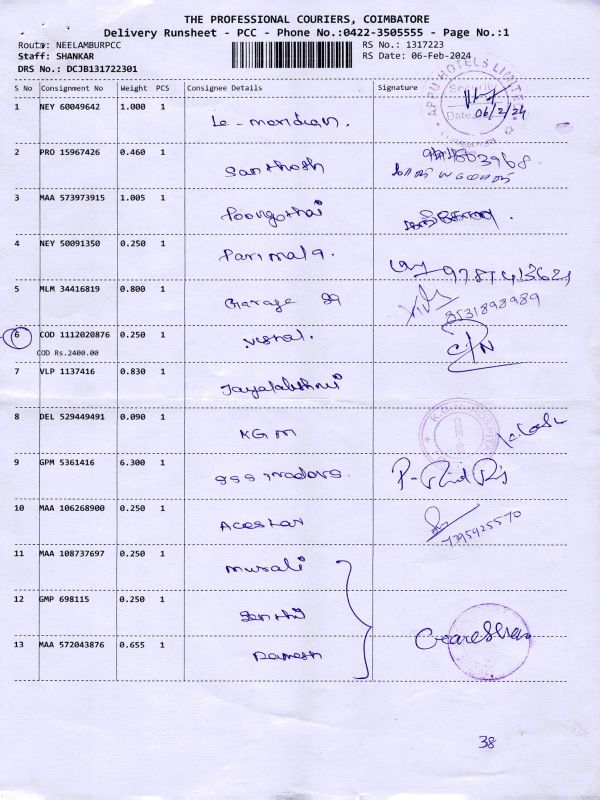 THE PROFESSIONAL COURIERS, COIMBATORE
Delivery Runsheet - PCC - Phone No.:0422-3505555 - Page No.:1
Route: NEELAMBURPCC RS No.: 1317223
Staff: SHANKAR RS Date: 06-Feb-2024
DRS No.: DCJB131722301
S No Consignment No Weight PCS Consignee Details Signature
1 NEY 60049642 1.000 1 Le-meridian. 06/2/24
APPU HOTELS LIMITED
2 PRO 15967426 0.460 1 Santhosh
3 MAA 573973915 1.005 1 Poongothai
4 NEY 50091350 0.250 1 Parimala.
5 MLM 34416819 0.800 1 Garage 29 8531898989
6 COD 1112020876 0.250 1 Vishal.
COD Rs.2400.00
7 VLP 1137416 0.830 1 Jayalakshmi
8 DEL 529449491 0.090 1 KGM
9 GPM 5361416 6.300 1 SSS Traders.
10 MAA 106268900 0.250 1 7395925570
11 MAA 108737697 0.250 1 Murali
12 GMP 698115 0.250 1 Senthil
13 MAA 572043876 0.655 1 Ramesh
38